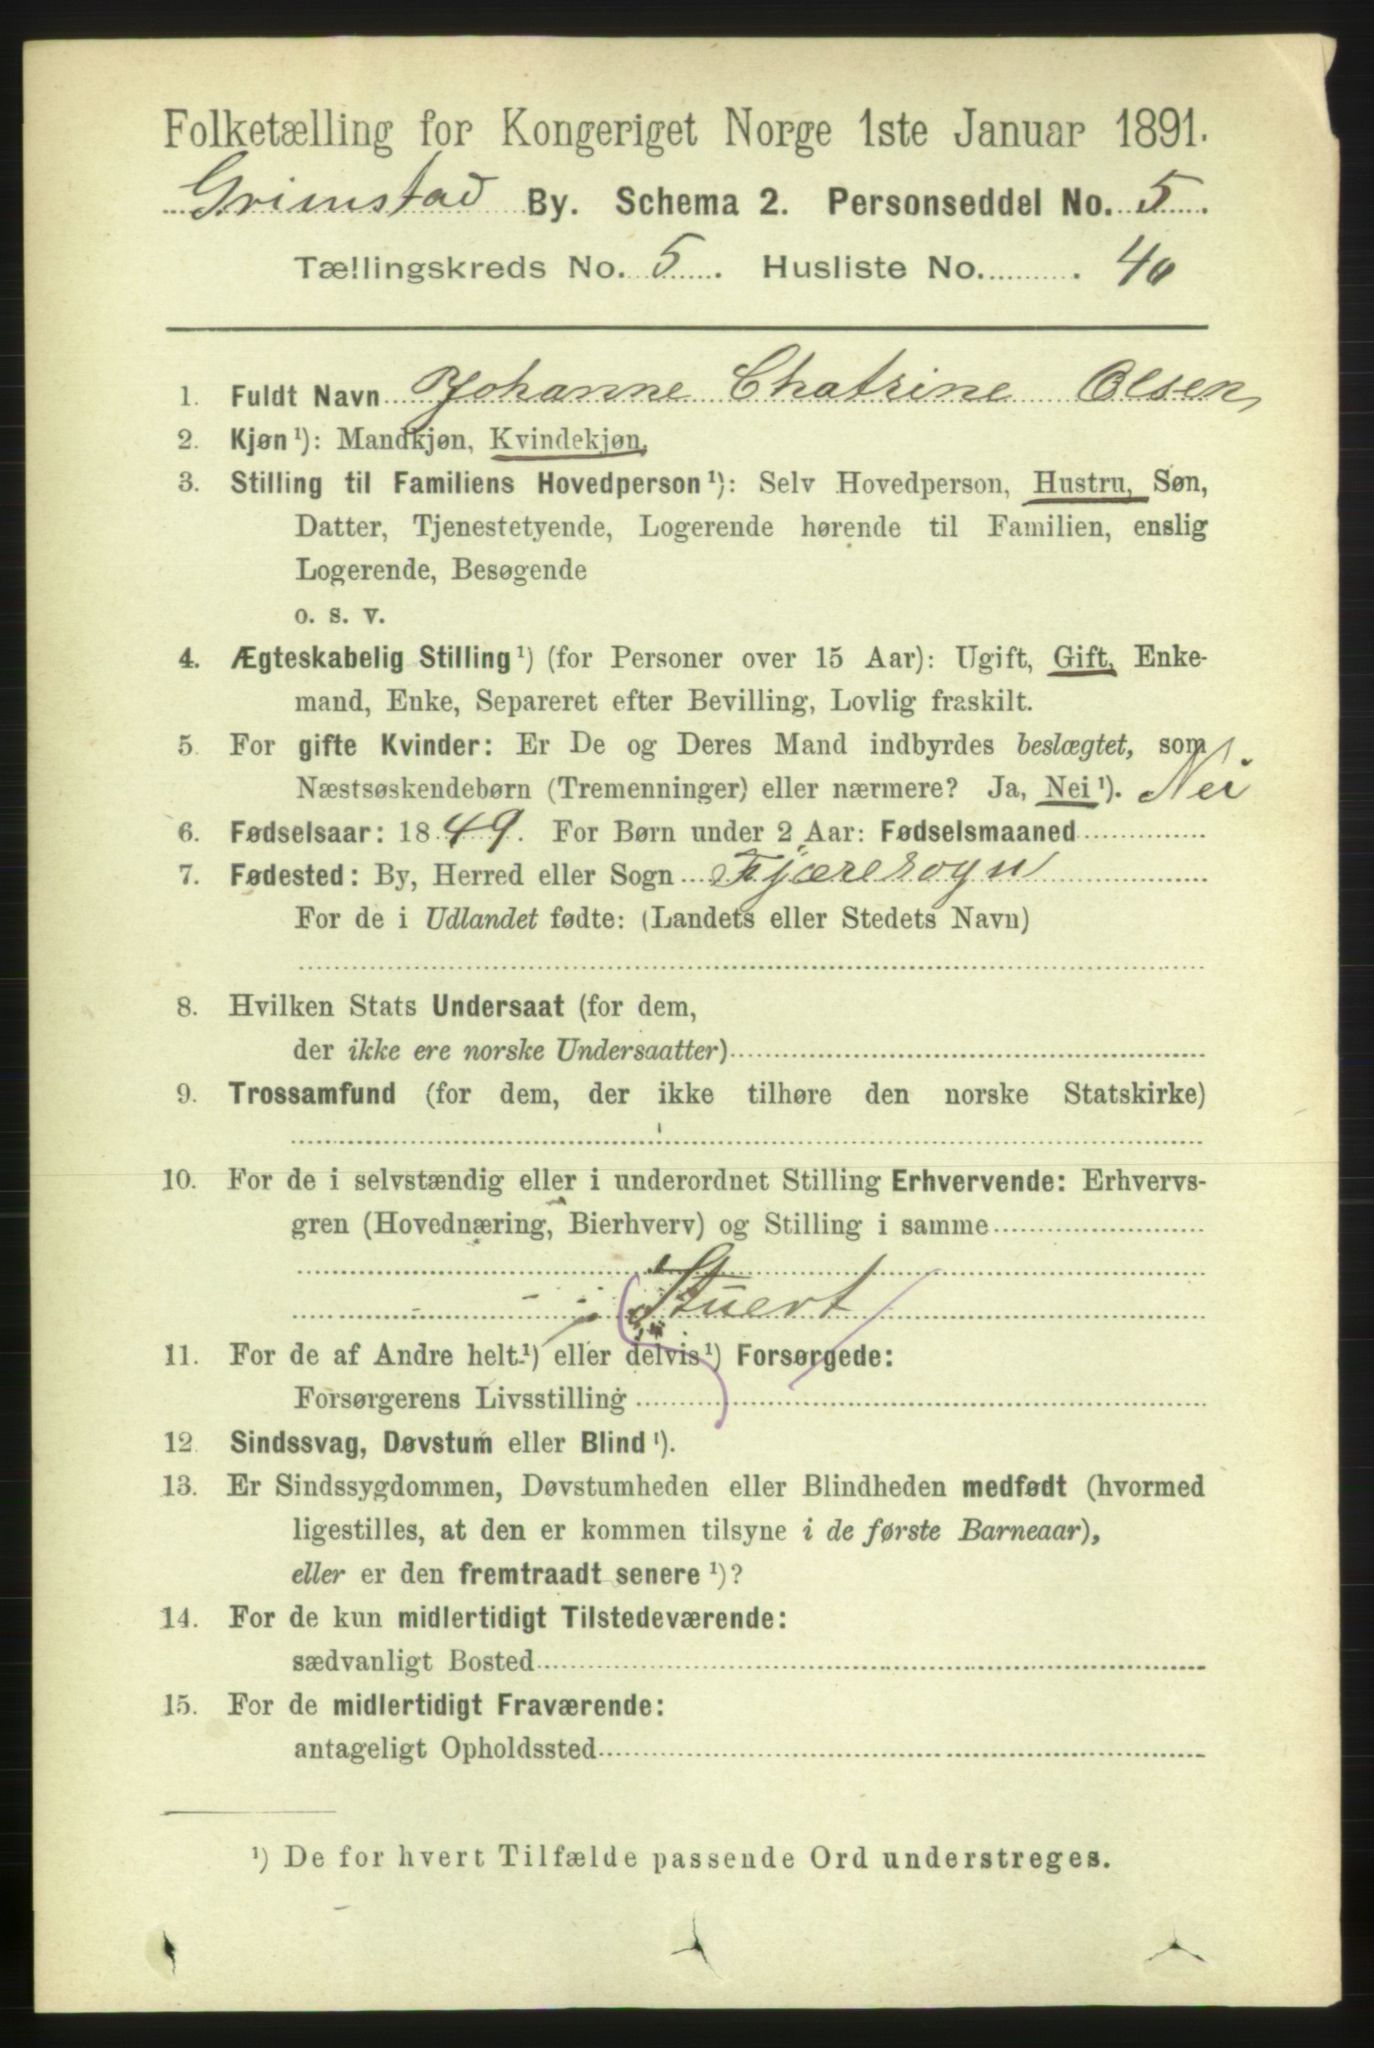 Folketælling for Kongeriget Norge 1ste Januar 1891.
Grimstad By. Schema 2. Personseddel No. 5.
Tællingskreds No. 5. Husliste No. 40
1. Fuldt Navn Johanne Chatrine Olsen,
2. Kjøn ¹): Mandkjøn, Kvindekjøn,
3. Stilling til Familiens Hovedperson ¹): Selv Hovedperson, Hustru, Søn,
Datter, Tjenestetyende, Logerende hørende til Familien, enslig
Logerende, Besøgende
o. s. v.
4. Ægteskabelig Stilling ¹) (for Personer over 15 Aar): Ugift, Gift, Enke-
mand, Enke, Separeret efter Bevilling, Lovlig fraskilt.
5. For gifte Kvinder: Er De og Deres Mand indbyrdes beslægtet, som
Næstsøskendebørn (Tremenninger) eller nærmere? Ja, Nei ¹). Nei
6. Fødselsaar: 1849. For Børn under 2 Aar: Fødselsmaaned
7. Fødested: By, Herred eller Sogn Fjæresogn
For de i Udlandet fødte: (Landets eller Stedets Navn)
8. Hvilken Stats Undersaat (for dem,
der ikke ere norske Undersaatter)
9. Trossamfund (for dem, der ikke tilhøre den norske Statskirke)
10. For de i selvstændig eller i underordnet Stilling Erhvervende: Erhvervs-
gren (Hovednæring, Bierhverv) og Stilling i samme
Stuert
11. For de af Andre helt ¹) eller delvis ¹) Forsørgede:
Forsørgerens Livsstilling
12. Sindssvag, Døvstum eller Blind ¹).
13. Er Sindssygdommen, Døvstumheden eller Blindheden medfødt (hvormed
ligestilles, at den er kommen tilsyne i de første Barneaar),
eller er den fremtraadt senere ¹)?
14. For de kun midlertidigt Tilstedeværende:
sædvanligt Bosted
15. For de midlertidigt Fraværende:
antageligt Opholdssted
¹) De for hvert Tilfælde passende Ord understreges.